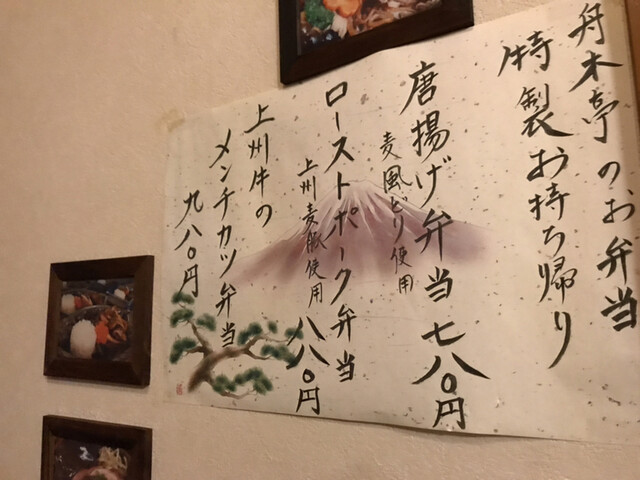 舟木亭のお弁当
特製お持ち帰り
唐揚げ弁当 七八〇円
麦風どり使用
ローストポーク弁当 八八〇円
上州麦豚使用
上州牛の
メンチカツ弁当
九八〇円